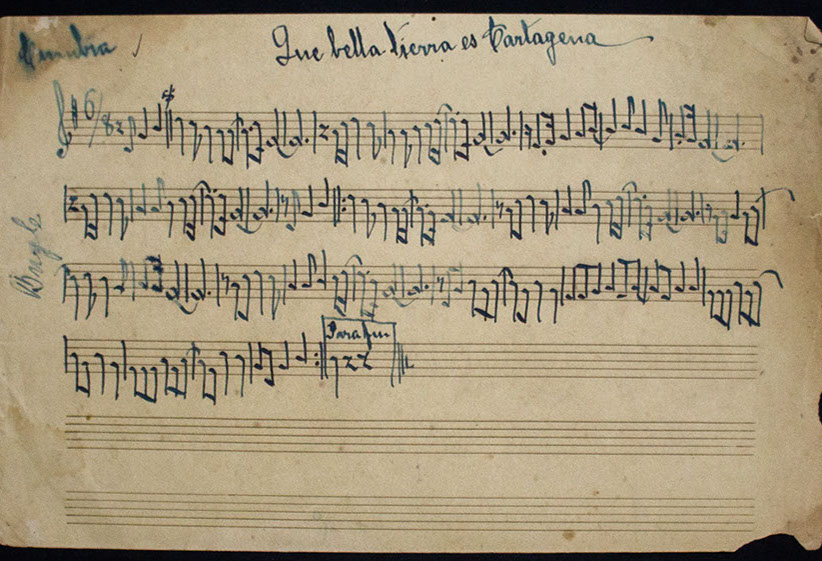 Cumbia
Que bella tierra es Cartagena
6/8
Bugle
Para fin